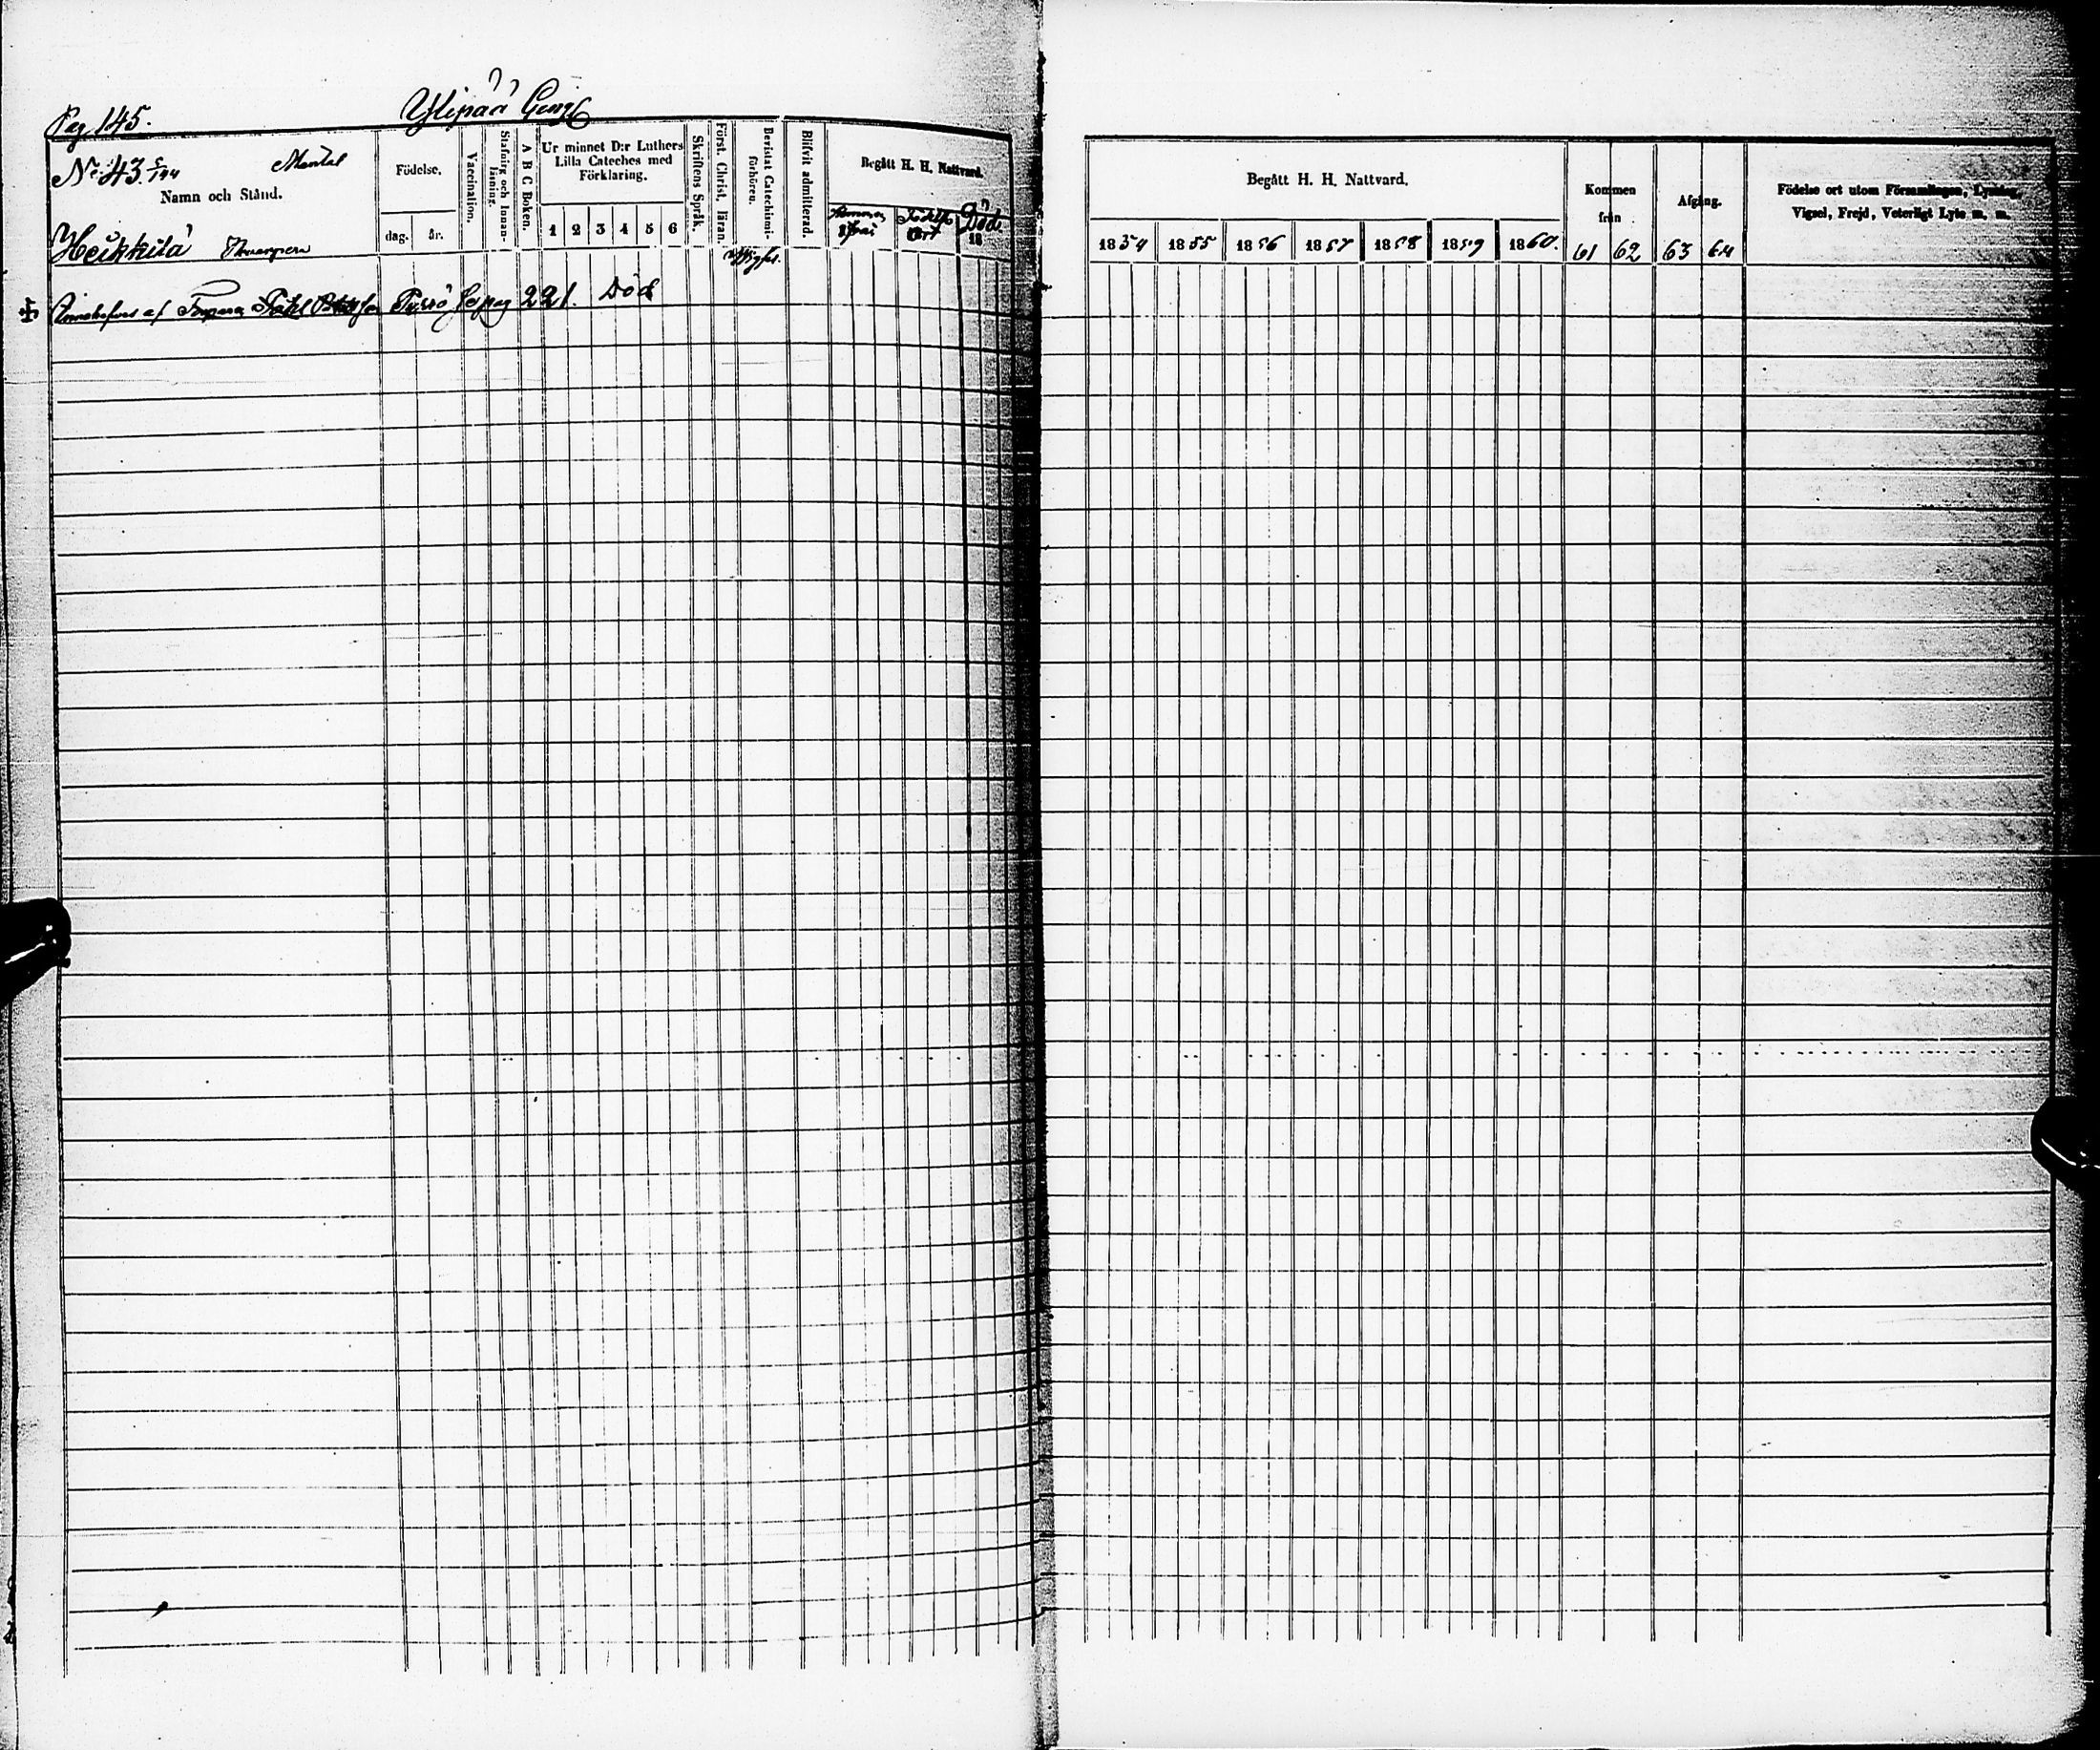 Pag 145. Ylipää
No 43. 5/144 Mantal
Namn och Stånd.
Födelse.
dag. år.
Vaccination.
Stafning och Innanläsning.
A B C Boken.
Ur minnet D:r Luthers
Lilla Cateches med
Förklaring.
1 2 3 4 5 6
Skriftens Språk.
Först. Christ. läran.
Bevistat Catechismiförhören.
Blifvit admitterad.
Begått H. H. Nattvard.
Död
18
Heikkilä
af pag 221. Död
Begått H. H. Nattvard.
1854 1855 1856 1857 1858 1859 1860.
Kommen
från
61 62
Afgång.
63 64
Födelse ort utom Församlingen, Lysning,
Vigsel, Frejd, Veterligt Lyte m. m.